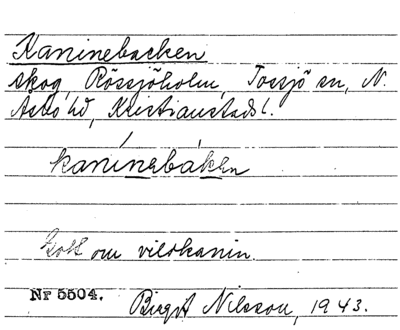 Kaninebacken
skog, Rössjöholm, Tossjö sn, N.
Åsbo hd, Kristianstads l.
kanínebáken
Gott om vildkanin.
Nr 5504. Birgit Nilsson, 1943.